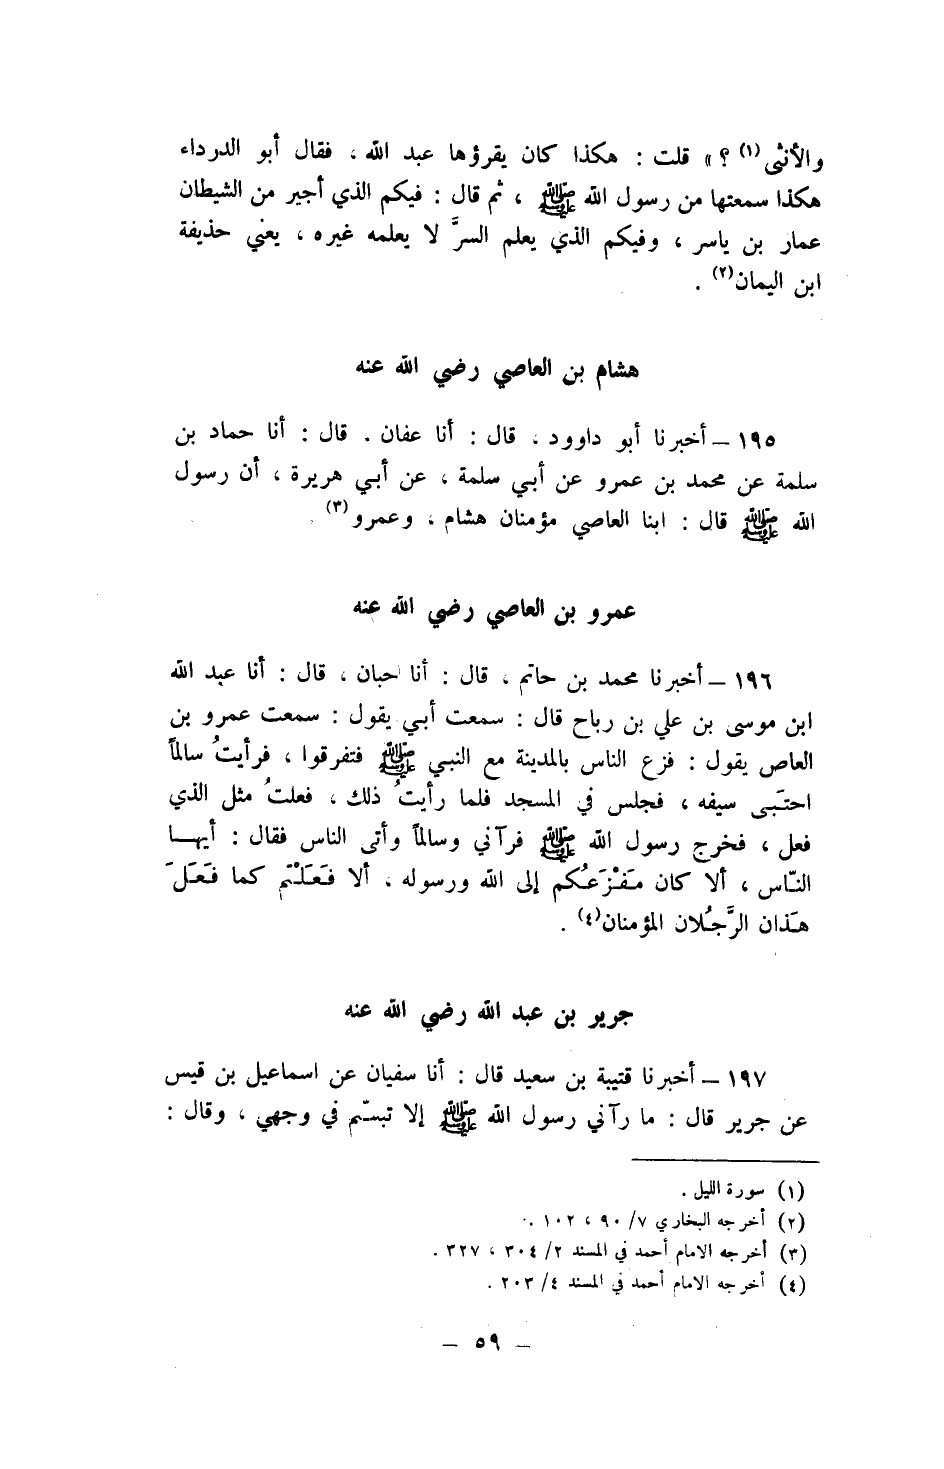 والأنثى(١) ؟ » قلت : هكذا كان يقرؤها عبد الله ، فقال أبو الدرداء
هكذا سمعتها من رسول الله ﷺ ، ثم قال : فيكم الذي أجير من الشيطان
عمار بن ياسر ، وفيكم الذي يعلم السرَّ لا يعلمه غيره ، يعني حذيفة
ابن اليمان(٢) .
هشام بن العاصي رضي الله عنه
١٩٥ – أخبرنا أبو داوود ، قال : أنا عفان . قال : أنا حماد بن
سلمة عن محمد بن عمرو عن أبي سلمة ، عن أبي هريرة ، أن رسول
الله ﷺ قال : ابنا العاصي مؤمنان هشام ، وعمرو(٣) .
عمرو بن العاصي رضي الله عنه
١٩٦ – أخبرنا محمد بن حاتم ، قال : أنا حبان ، قال : أنا عبد الله
ابن موسى بن علي بن رباح قال : سمعت أبي يقول : سمعت عمرو بن
العاص يقول : فزع الناس بالمدينة مع النبي ﷺ فتفرقوا ، فرأيتُ سالماً
احتَبى سيفه ، فجلس في المسجد فلما رأيتُ ذلك ، فعلتُ مثل الذي
فعل ، فخرج رسول الله ﷺ فرآني وسالماً وأتى الناس فقال : أيهـــا
النّاس ، ألا كان مَفْزَعُكم إلى الله ورسوله . ألا فَعَلْتم كما فَعَلَ
هَذان الرَّجُلان المؤمنان(٤) .
جرير بن عبد الله رضي الله عنه
١٩٧ – أخبرنا قتيبة بن سعيد قال : أنا سفيان عن اسماعيل بن قيس
عن جرير قال : ما رآني رسول الله ﷺ إلا تبسّم في وجهي ، وقال :
(١) سورة الليل .
(٢) أخرجه البخاري ٧/ ٩٠ ، ١٠٢ .
(٣) أخرجه الامام أحمد في المسند ٢/ ٣٠٤ ، ٣٢٧ .
(٤) أخرجه الامام أحمد في المسند ٤/ ٢٠٣ .
– ٥٩ –